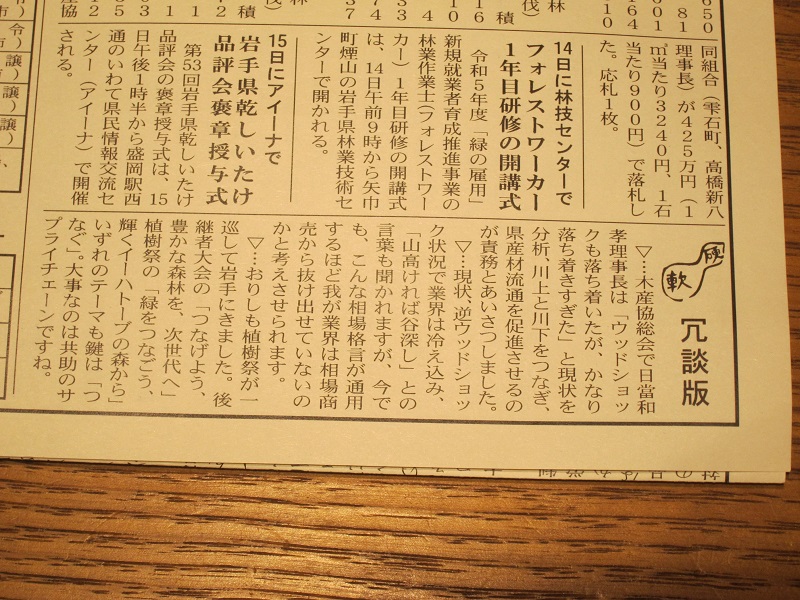 同組合（雫石町、高橋新八
理事長）が４２５万円（１
㎥当たり３２４０円、１石
当たり９００円）で落札し
た。応札１枚。
14日に林技センターで
フォレストワーカー
１年目研修の開講式
令和５年度「緑の雇用」
新規就業者育成推進事業の
林業作業士（フォレストワー
カー）１年目研修の開講式
は、14日午前９時から矢巾
町煙山の岩手県林業技術セ
ンターで開かれる。
15日にアイーナで
岩手県乾しいたけ
品評会褒章授与式
第53回岩手県乾しいたけ
品評会の褒章授与式は、15
日午後１時半から盛岡駅西
通のいわて県民情報交流セ
ンター（アイーナ）で開催
される。
硬
軟
冗談版
▽…木産協総会で日當和
孝理事長は「ウッドショッ
クも落ち着いたが、かなり
落ち着きすぎた」と現状を
分析、川上と川下をつなぎ、
県産材流通を促進させるの
が責務とあいさつしました。
▽…現状、逆ウッドショッ
ク状況で業界は冷え込み、
「山高ければ谷深し」との
言葉も聞かれますが、今で
も、こんな相場格言が通用
するほど我が業界は相場商
売から抜け出せていないの
かと考えさせられます。
▽…おりしも植樹祭が一
巡して岩手にきました。後
継者大会の「つなげよう、
豊かな森林を、次世代へ」
植樹祭の「緑をつなごう、
輝くイーハトーブの森から」
いずれのテーマも鍵は「つ
なぐ」。大事なのは共助のサ
プライチェーンですね。